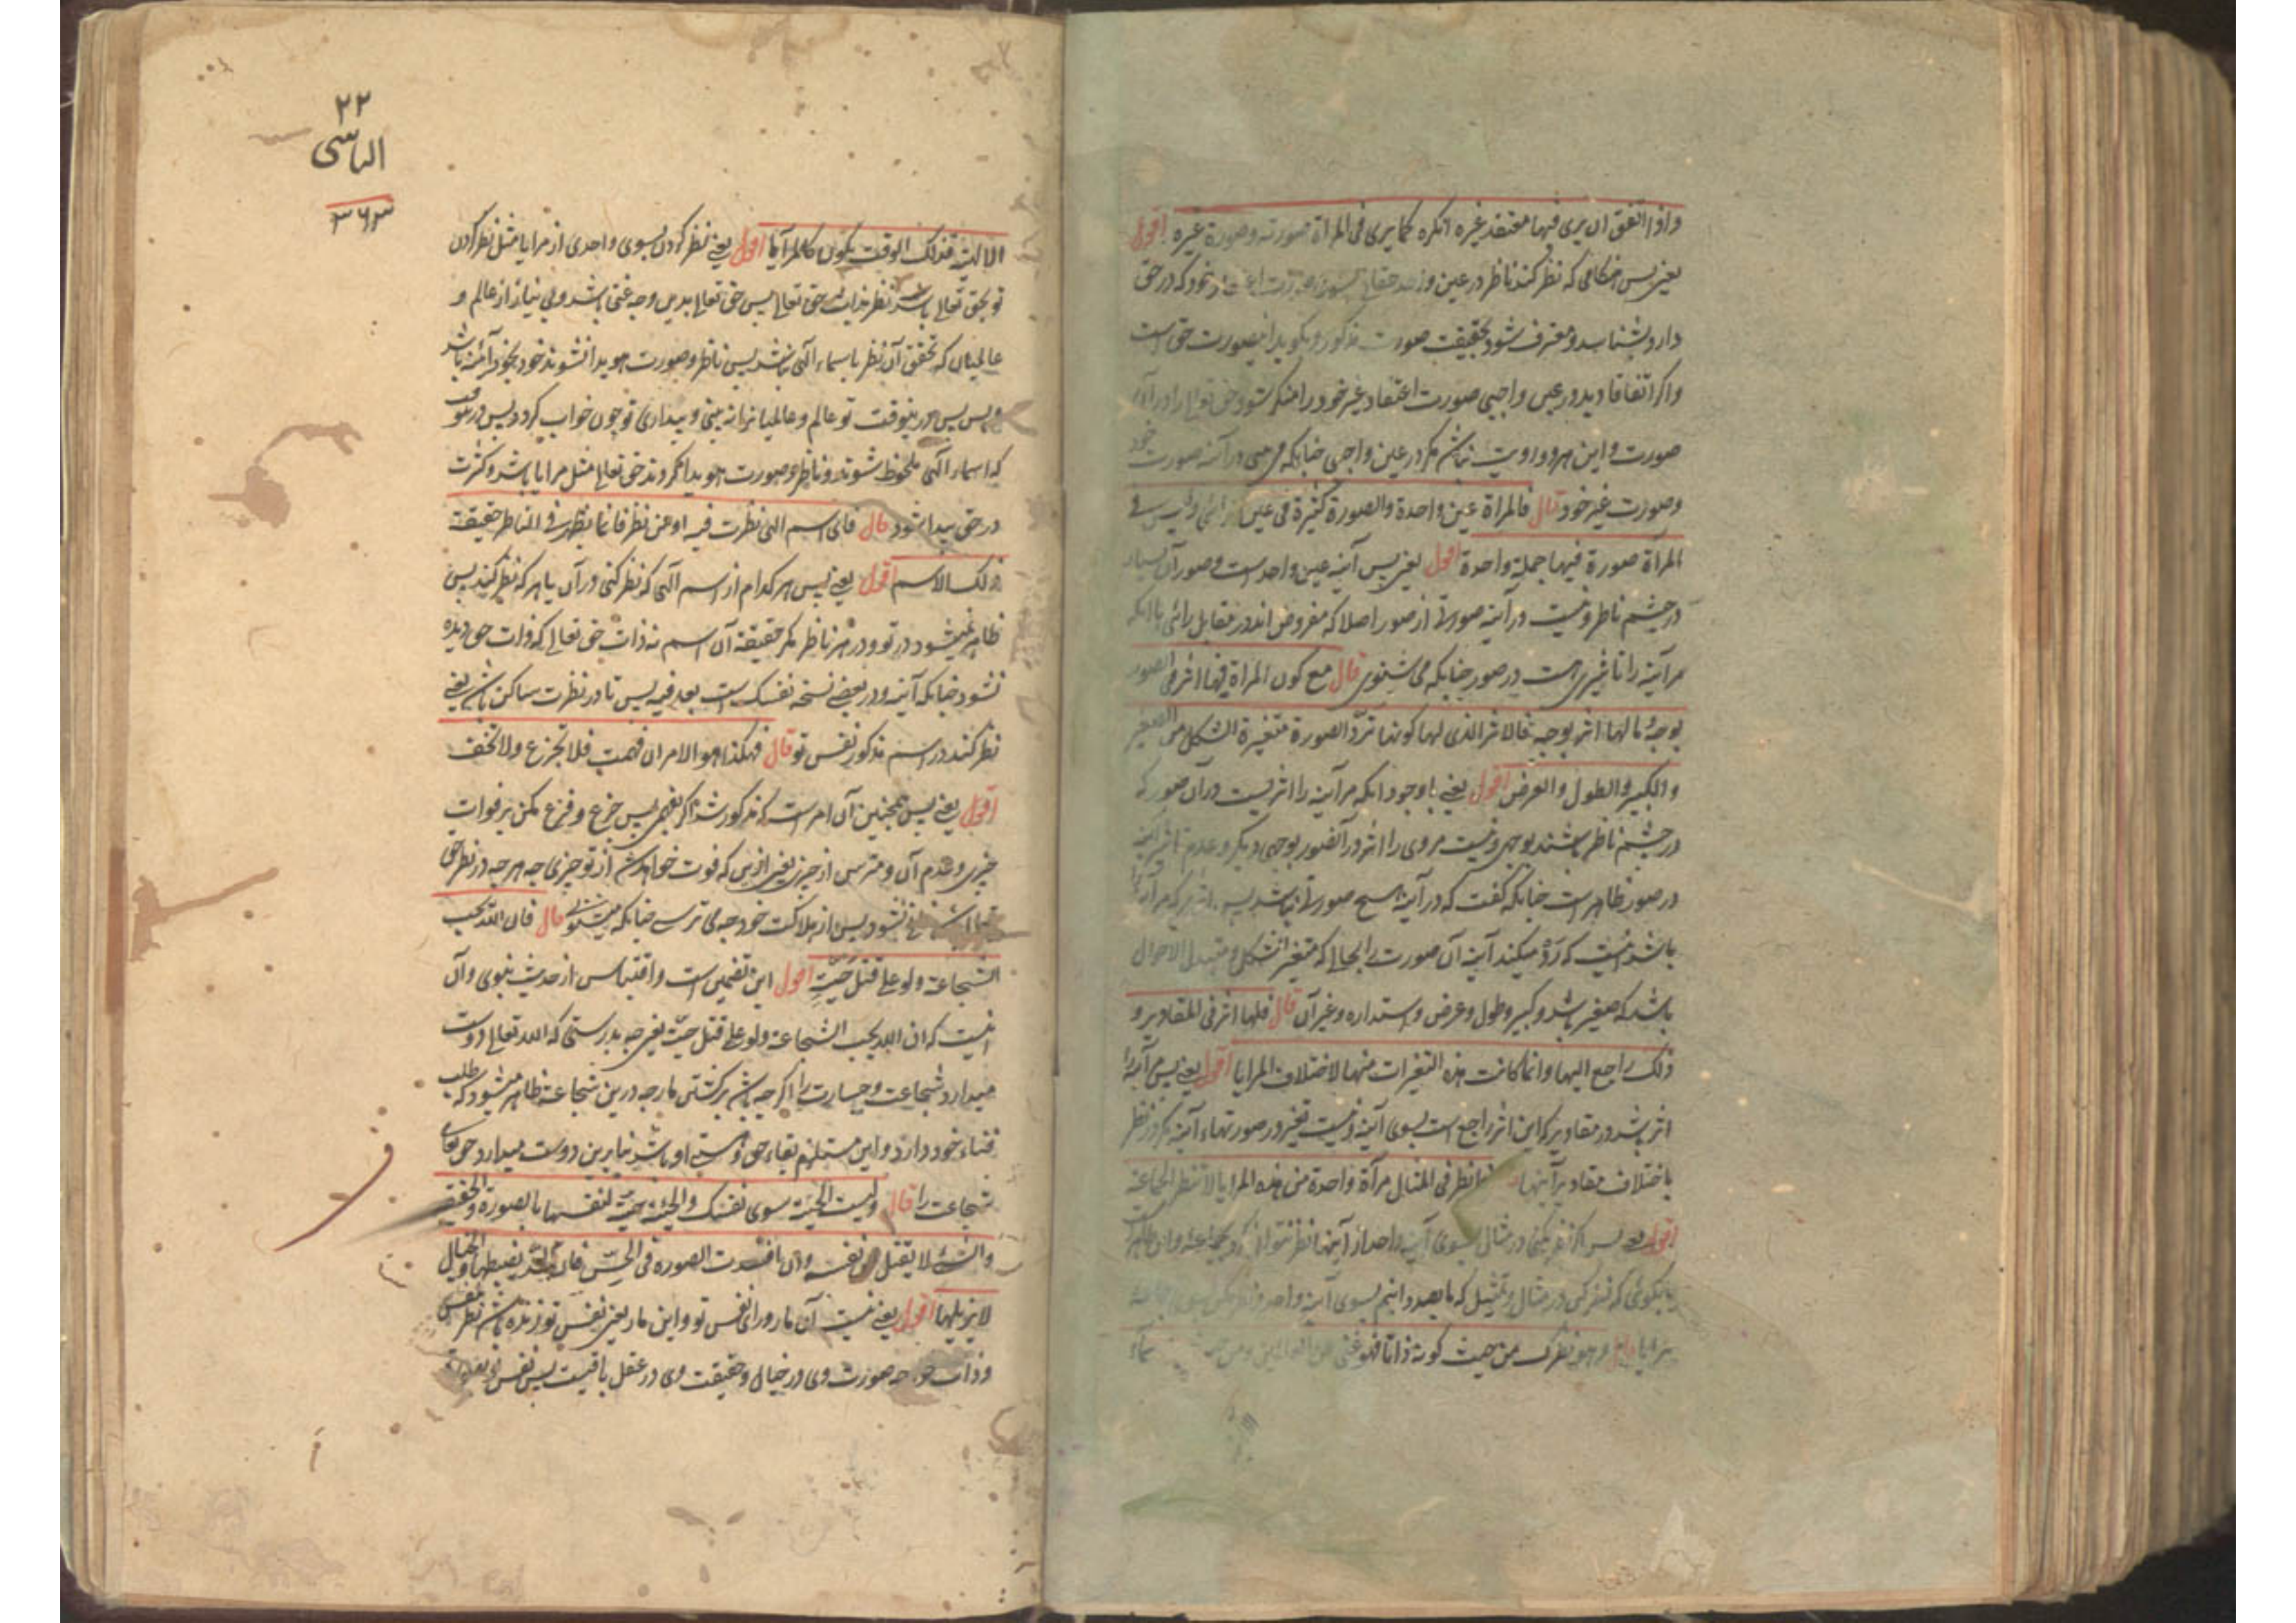 واذا اتفق ان یری فیها معتقد غیره انکره کما یری فی المرآة صورته وصورة غیره اقول
یعنی پس هنگامی که نظر کند ناظر در عین واحد که در حق
دارد بشناسد و معترف شود بحقیقت صورت مذکور و بگوید اینصورت حق است
واکر اتفاقا دید در عین واجبی صورت اعتقاد غیر خود را منکر شود حق تعالی را در آن
صورت و این هر دو رویت نباشد مگر در عین واجبی چنانکه می بینی در آینه صورت خود
وصورت غیر خود قال فالمرآة عین واحدة والصورة کثیرة فی عین الرائی ولیس فی
المرآة صورة فیها جملة واحدة اقول یعنی پس آینه عین واحد است و صور آن بسیار
در چشم ناظر و نیست در آینه صورتی از صور اصلا که مفروض اند در مقابل رائی با آنکه
مر آینه را تاثیری است در صور چنانکه می شنوی قال مع کون المرآة فیها اثر فی الصور
بوجه و ما لها اثر بوجه فالاثر الذی لها کونها ترد الصورة متغیرة الشکل من الصغیر
والکبیر والطول والعرض اقول یعنی باوجود آنکه مر آینه را اثریست در آن صور که
در چشم ناظر باشند بوجهی و نیست مر وی را اثر در آنصور بوجهی دیگر و عدم تاثیر آینه
در صور ظاهر است چنانکه گفت که در آینه هیچ صورتی نباشد پس اثر که مر آینه را
باشد اینست که رد میکند آینه آن صورت را بحالی که متغیر الشکل و متبدل الاحوال
باشد که صغیر باشد و کبیر و طول و عرض و استداره و غیر آن قال فلها اثر فی المقادیر و
ذلک راجع الیها وانما کانت هذه التغیرات منها لاختلاف المرایا اقول یعنی پس مر آینه را
اثر باشد در مقادیر که این اثر راجع است بسوی آینه و نیست تغیر در صورتهاء آینه مگر در نظر
باختلاف مقادیر آینها فانظر فی المثال مرآة واحدة من هذه المرایا لا تنظر الجماعة
اقول یعنی پس نظر کنی در مثال بسوی آینه واحد از آینها
یا بگوئی که نظر کن در مثال و تمثیل که ما بصدد آنیم بسوی آینه واحد و نظر مکن بسوی جماعه
مرایا قال وهو نظرک من حیث کونه ذاتا فهو غنی عن العالمین ومن حیث
۲۲
الیاسی
۳۶۳
الالهیة فذلک الوقت یکون کالمرآیا اقول یعنی نظر کردن بسوی واحدی از مرایا مثل نظر کردن
تو بحق تعالی باشد نظر بذات حق تعالی پس حق تعالی بدین وجه غنی باشد و بی نیاز از عالم و
عالمیان که تحقق آن نظر باسماء الهی نباشد پس ناظر و صورت هویدا نشوند خود بخود آئنه باشد
و بس پس درینوقت تو عالم و عالمیانرا نه بینی و بیداری تو چون خواب گردد پس درینوقت
که اسماء الهی ملحوظ شوند و ناظر و صورت هویدا گردند حق تعالی مثل مرایا باشد و کثرت
در حق پیدا شود قال فای اسم الهی نظرت فیه او من نظر فانما یظهر فی الناظر حقیقة
ذلک الاسم اقول یعنی پس هر کدام از اسم الهی که نظر کنی در آن یا هر که نظر کند پس
ظاهر نمیشود در تو و در هر ناظر مگر حقیقة آن اسم نه ذات حق تعالی که ذات حق دیده
نشود چنانکه آینه و در بعضی نسخه نفسک است بعد فیه پس تا در نظرت ساکن باشد یعنی
نظر کند در اسم مذکور نفس تو قال فهکذا هو الامر ان فهمت فلا تجزع ولا تخف
اقول یعنی پس همچنین آن امر است که مذکور شد اگر بفهمی پس جزع و فزع مکن بر فوات
چیزی و عدم آن و مترس از چیزی یعنی ازین که فوت خواهد شد از تو چیزی چه هر چه در نظر حق
فانی نشود پس از هلاکت خود چه می ترسی چنانکه میشنوی قال فان الله یحب
الشجاعة ولو علی قتل حیة اقول این تضمین است و اقتباس از حدیث نبوی و آن
اینست که ان الله یحب الشجاعة ولو علی قتل حیة یعنی چه بدرستی که الله تعالی دوست
میدارد شجاعت و جسارت را اگرچه باشد بر کشتن مار چه درین شجاعة ظاهر میشود که طلب
فناء خود دارد و این مستلزم بقاء حق و هستی او باشد بنابرین دوست میدارد حق تعالی
شجاعت را قال ولیست الحیة سوی نفسک والحیة حیة لنفسها بالصورة والحقیقة
والشیء لا یقتل عن نفسه وان افسدت الصورة فی الحس فان الحد یضبطها والخیال
لا یزیلها اقول یعنی نیست آن مار ورای نفس تو و این مار یعنی نفس تو زنده باشد نظر بنفس
وذات خود چه صورت وی در خیال و حقیقت وی در عقل باقیست پس نفس